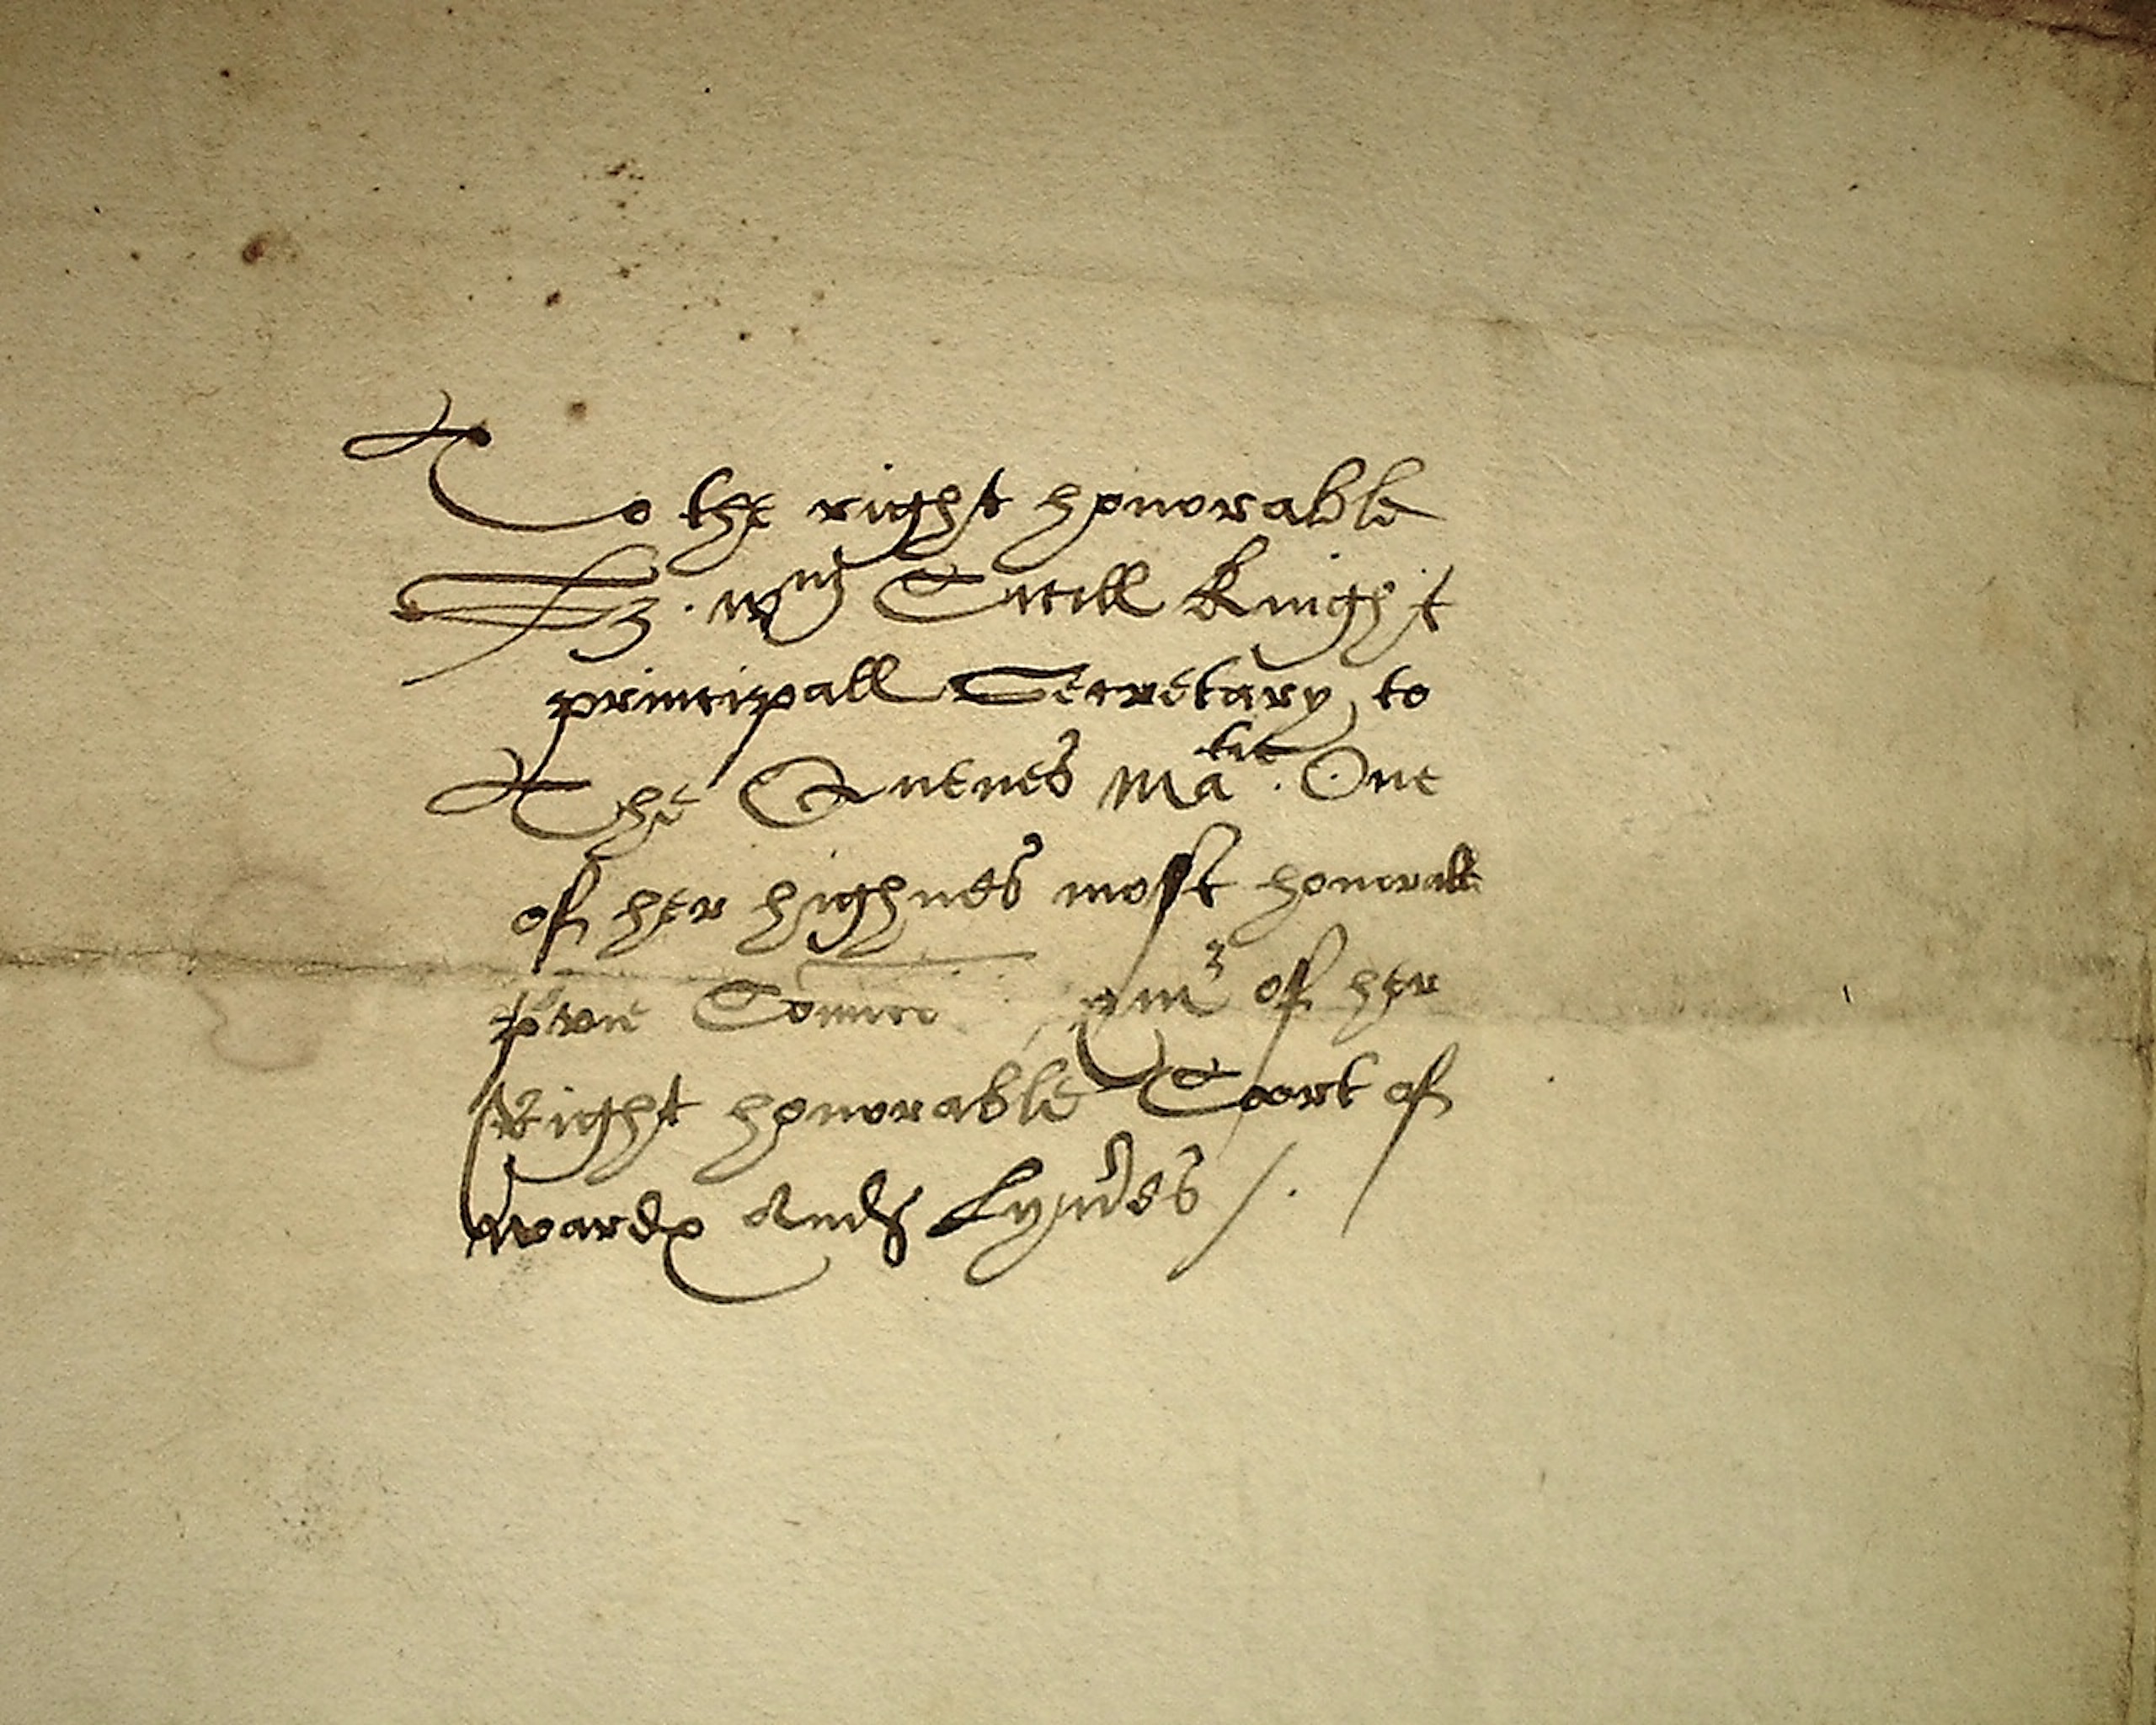 To the right honorable
Sr. wm Cicill Knight
principall Secretary to
The Quenes Matie. One
of her highnes most honorable
of her
Right honorable Coort of
wardes And Lyu'es /.